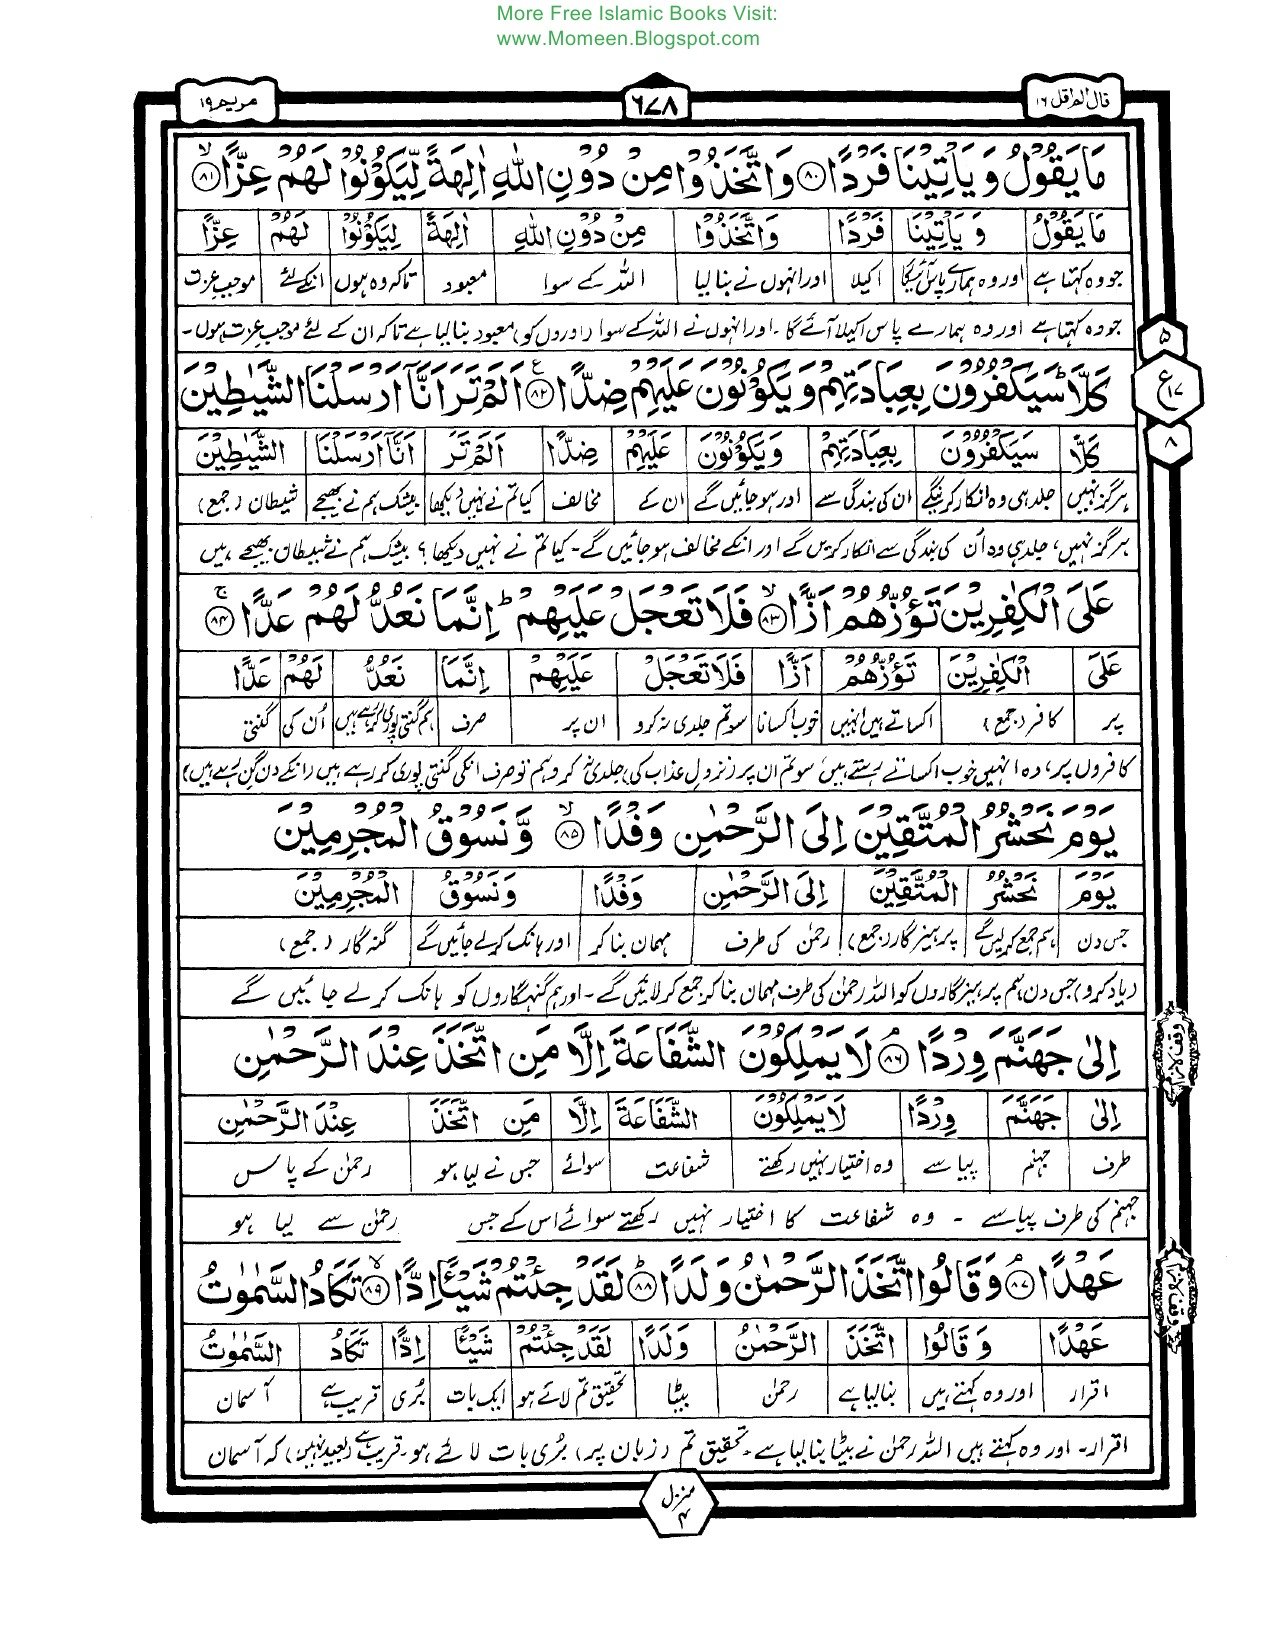 More Free Islamic Books Visit:
www.Momeen.Blogspot.com
قال الم اقل ١٦
٦٧٨
مریم ١٩
مَا يَقُوْلُ وَيَاْتِيْنَا فَرْدًا ﴿۸۰﴾ وَاتَّخَذُوْا مِنْ دُوْنِ اللّٰهِ اٰلِهَةً لِّيَكُوْنُوْا لَهُمْ عِزًّا ﴿۸۱﴾
مَا يَقُوْلُ وَيَاْتِيْنَا فَرْدًا وَاتَّخَذُوْا مِنْ دُوْنِ اللّٰهِ اٰلِهَةً لِّيَكُوْنُوْا لَهُمْ عِزًّا
جو وہ کہتا ہے اور وہ ہمارے پاس آئیگا اکیلا اور انہوں نے بنالیا اللہ کے سوا معبود تاکہ وہ ہوں انکے لئے موجب عزت
جو وہ کہتا ہے اور وہ ہمارے پاس اکیلا آئے گا۔ اور انہوں نے اللہ کے سوا (اوروں کو) معبود بنالیا ہے تاکہ ان کے لئے موجب عزت ہوں۔
۵
ع ۱۷
۸
كَلَّا ؕ سَيَكْفُرُوْنَ بِعِبَادَتِهِمْ وَيَكُوْنُوْنَ عَلَيْهِمْ ضِدًّا ﴿۸۲﴾ اَلَمْ تَرَ اَنَّاۤ اَرْسَلْنَا الشَّيٰطِيْنَ
كَلَّا سَيَكْفُرُوْنَ بِعِبَادَتِهِمْ وَيَكُوْنُوْنَ عَلَيْهِمْ ضِدًّا اَلَمْ تَرَ اَنَّاۤ اَرْسَلْنَا الشَّيٰطِيْنَ
ہرگز نہیں جلد ہی وہ انکار کرینگے ان کی بندگی سے اور ہوجائیں گے ان کے مخالف کیا تم نے نہیں دیکھا بیشک ہم نے بھیجے شیطان (جمع)
ہرگز نہیں، جلد ہی وہ اُن کی بندگی سے انکار کریں گے اور انکے مخالف ہوجائیں گے۔ کیا تم نے نہیں دیکھا؟ بیشک ہم نے شیطان بھیجے ہیں
عَلَى الْكٰفِرِيْنَ تَؤُزُّهُمْ اَزًّا ﴿۸۳﴾ فَلَا تَعْجَلْ عَلَيْهِمْ ؕ اِنَّمَا نَعُدُّ لَهُمْ عَدًّا ﴿۸۴﴾
عَلَى الْكٰفِرِيْنَ تَؤُزُّهُمْ اَزًّا فَلَا تَعْجَلْ عَلَيْهِمْ اِنَّمَا نَعُدُّ لَهُمْ عَدًّا
پر کافر (جمع) اکساتے ہیں انہیں خوب اکسانا سو تم جلدی نہ کرو ان پر صرف ہم گنتی پوری کر رہے ہیں اُن کی گنتی
کافروں پر، وہ انہیں خوب اکساتے رہتے ہیں، سو تم ان پر (نزولِ عذاب کی) جلدی نہ کرو ہم تو صرف انکی گنتی پوری کر رہے ہیں (انکے دن گن رہے ہیں)
يَوْمَ نَحْشُرُ الْمُتَّقِيْنَ اِلَى الرَّحْمٰنِ وَفْدًا ﴿۸۵﴾ وَّنَسُوْقُ الْمُجْرِمِيْنَ
يَوْمَ نَحْشُرُ الْمُتَّقِيْنَ اِلَى الرَّحْمٰنِ وَفْدًا وَنَسُوْقُ الْمُجْرِمِيْنَ
جس دن ہم جمع کرلیں گے پرہیزگار (جمع) رحمٰن کی طرف مہمان بنا کر اور ہانک کرلے جائیں گے گنہگار (جمع)
(یاد کرو) جس دن ہم پرہیزگاروں کو اللہ رحمٰن کی طرف مہمان بنا کر جمع کر لائیں گے۔ اور ہم گنہگاروں کو ہانک کر لے جائیں گے
اِلٰى جَهَنَّمَ وِرْدًا ﴿۸۶﴾ لَا يَمْلِكُوْنَ الشَّفَاعَةَ اِلَّا مَنِ اتَّخَذَ عِنْدَ الرَّحْمٰنِ
وقف لازم
اِلٰى جَهَنَّمَ وِرْدًا لَا يَمْلِكُوْنَ الشَّفَاعَةَ اِلَّا مَنِ اتَّخَذَ عِنْدَ الرَّحْمٰنِ
طرف جہنم پیاسے وہ اختیار نہیں رکھتے شفاعت سوائے جس نے لیا ہو رحمٰن کے پاس
جہنم کی طرف پیاسے ۔ وہ شفاعت کا اختیار نہیں رکھتے سوائے اس کے جس رحمٰن سے لیا ہو
عَهْدًا ﴿۸۷﴾ وَقَالُوا اتَّخَذَ الرَّحْمٰنُ وَلَدًا ﴿۸۸﴾ لَقَدْ جِئْتُمْ شَيْـًٔا اِدًّا ﴿۸۹﴾ تَكَادُ السَّمٰوٰتُ
وقف لازم
عَهْدًا وَقَالُوا اتَّخَذَ الرَّحْمٰنُ وَلَدًا لَقَدْ جِئْتُمْ شَيْـًٔا اِدًّا تَكَادُ السَّمٰوٰتُ
اقرار اور وہ کہتے ہیں بنالیا ہے رحمٰن بیٹا تحقیق تم لائے ہو ایک بات بُری قریب ہے آسمان
اقرار۔ اور وہ کہتے ہیں اللہ رحمٰن نے بیٹا بنالیا ہے۔ تحقیق تم (زبان پر) بُری بات لائے ہو۔ قریب ہے (بعید نہیں) کہ آسمان
منزل ۴